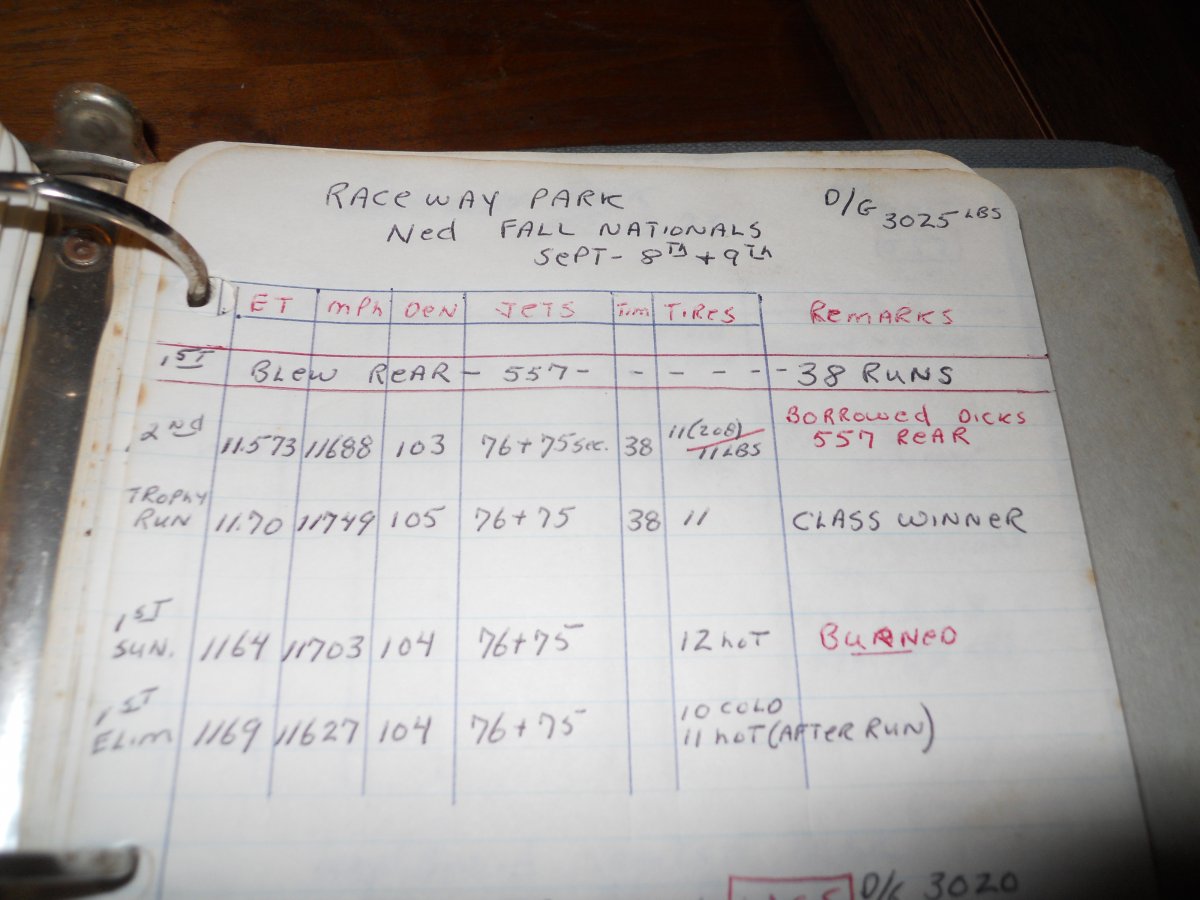 RACEWAY PARK D/G 3025 LBS
Ned FALL NATIONALS
SePT- 8TH + 9TH
ET mPh DeN JeTS Tim TiRes RemARKS
1ST BLew ReAR - 557 - - - - - - 38 RUNS
2Nd 11.573 11688 103 76+75 sec. 38 11(208) 11 LBS BORROWed DICKS
557 ReAR
TROPHY
RUN 11.70 11749 105 76+75 38 11 CLASS WINNeR
1ST
SUN. 1164 11703 104 76+75 12 hoT BURNeD
1ST
ELim 1169 11627 104 76+75 10 COLD
11 hoT (AFTeR RUN)
3020